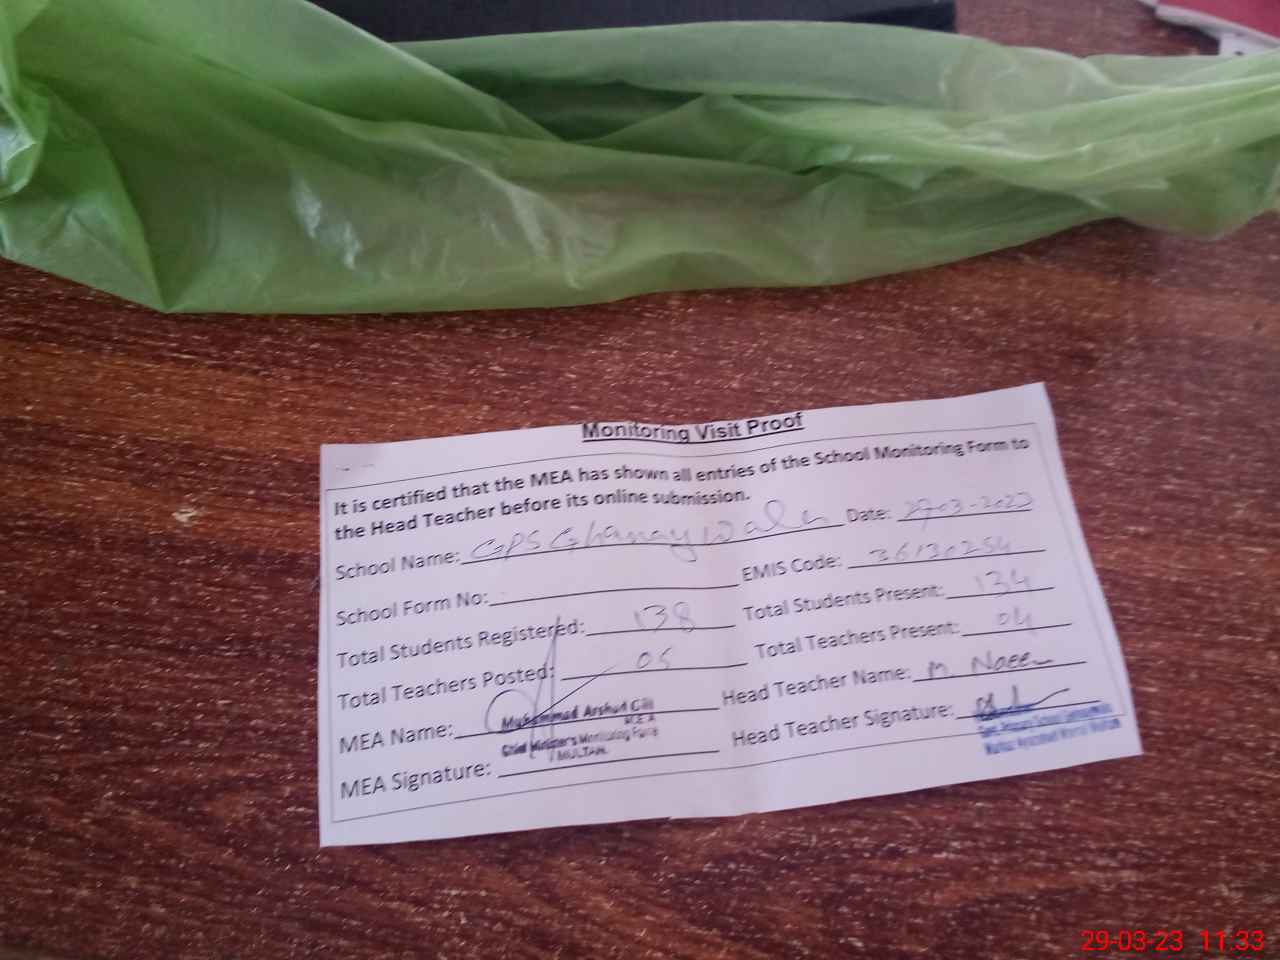 Monitoring Visit Proof
It is certified that the MEA has shown all entries of the School Monitoring Form to
the Head Teacher before its online submission.
School Name: GPS Ghanay Wala Date: 29-03-2023
School Form No: EMIS Code: 36130254
Total Students Registered: 138 Total Students Present: 134
Total Teachers Posted: 05 Total Teachers Present: 04
MEA Name: Muhammad Arshad Gill Head Teacher Name: M. Naeem
M.E.A
Chief Minister's Monitoring Force
MULTAN.
MEA Signature: Head Teacher Signature:
29-03-23 11:33